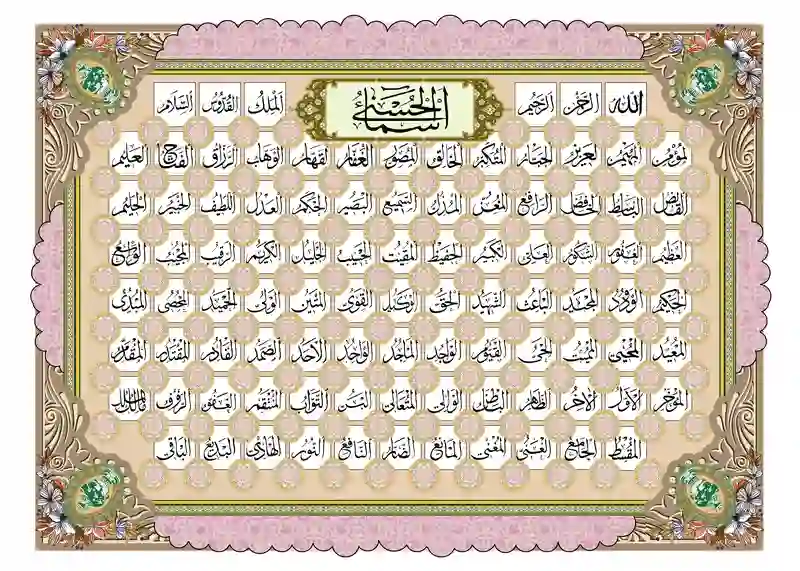 الله الرحمن الرحيم أسماء الحسنى الملك القدوس السلام
المؤمن المهيمن العزيز الجبار المتكبر الخالق المصور الغفار القهار الوهاب الرزاق الفتاح العليم
القابض الباسط الخافض الرافع المعز المذل السميع البصير الحكم العدل اللطيف الخبير الحليم
العظيم الغفور الشكور العلي الكبير الحفيظ المقيت الحسيب الجليل الكريم الرقيب المجيب الواسع
الحكيم الودود المجيد الباعث الشهيد الحق الوكيل القوي المتين الولي الحميد المحصي المبدئ
المعيد المحيي المميت الحي القيوم الواجد الماجد الواحد الاحد الصمد القادر المقتدر المقدم
المؤخر الأول الآخر الظاهر الباطن الوالي المتعالي البر التواب المنتقم العفو الرؤف مالك الملك
المقسط الجامع الغني المغني المانع الضار النافع النور الهادي البديع الباقي